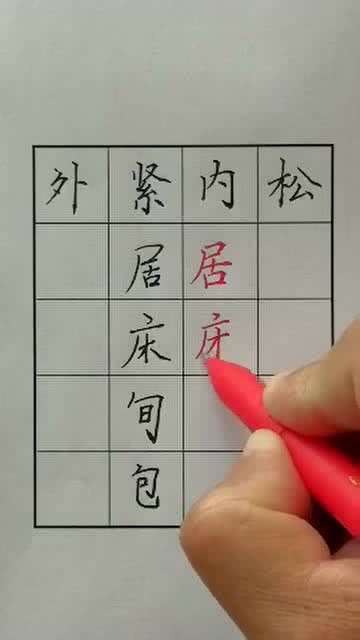 外紧内松
居居
床床
旬
包